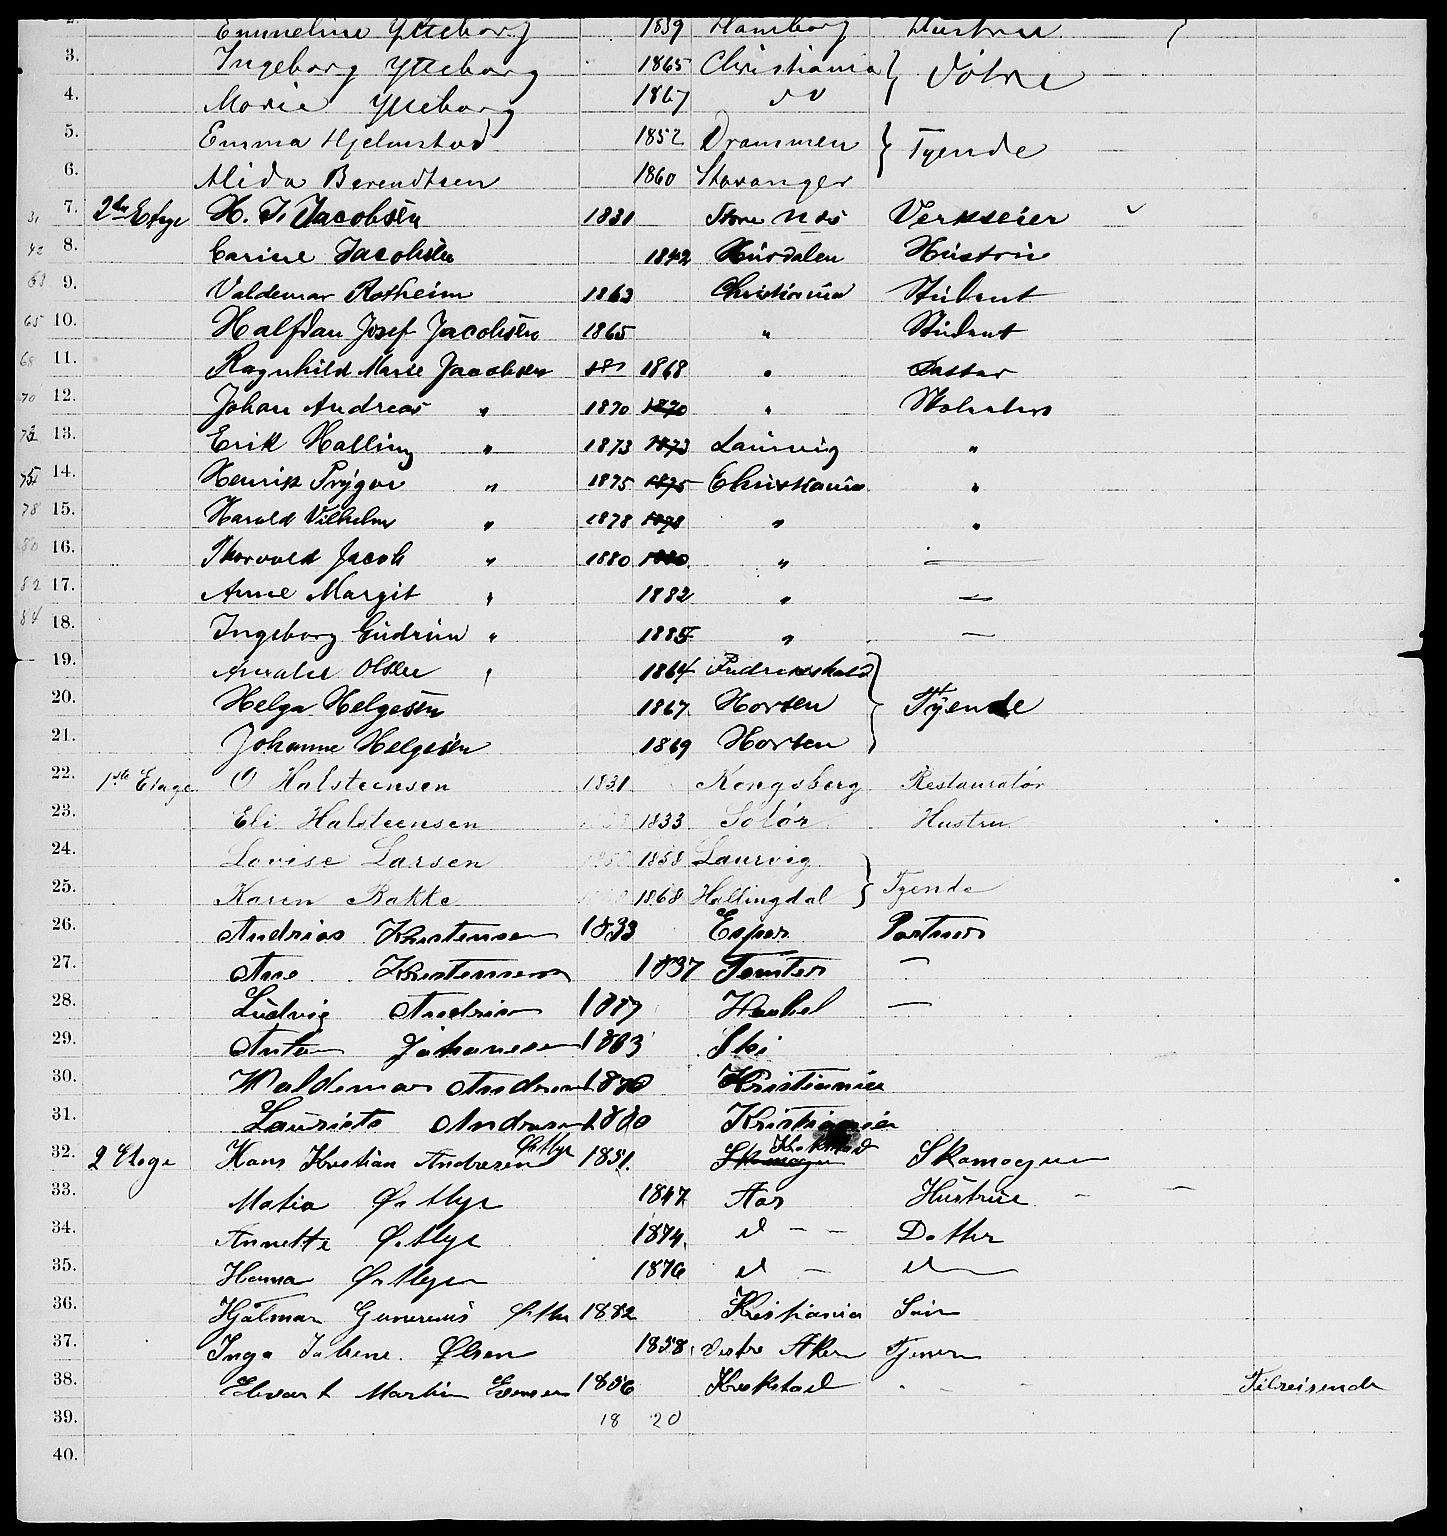 2. Emmeline Ytteborg 1839 Hamborg Hustru
3. Ingeborg Ytteborg 1865 Christiania } Døtre
4. Marie Ytteborg 1867 do
5. Emma Hjelmstad 1852 Drammen } Tyende
6. Alida Berendtsen 1860 Stavanger
31 7. 2den Etage H. I. Jacobsen 1831 Store Næs Verkseier
42 8. Carine Jacobsen 1842 Hurdalen Hustru
63 9. Valdemar Rotheim 1863 Christiania Student
65 10. Halfdan Josef Jacobsen 1865 " Student
68 11. Ragnhild Marie Jacobsen 187 1868 " Datter
70 12. Johan Andreas " 1870 1870 "
73 13. Erik Halling " 1873 1873 Laurvig "
75 14. Henrik Prÿger " 1875 1875 Christiania "
78 15. Harald Vilhelm " 1878 1878 " "
80 16. Thorvald Jacob " 1880 1880 " —
82 17. Anne Margit " 1882 " —
84 18. Ingeborg Gudrun " 1885 " —
19. Amalie Olsen " 1864 Fredrikshald }
20. Helga Helgesen 1867 Horten Tÿende
21. Johanne Helgesen 1869 Horten
22. 1ste Etage O Halsteensen 1831 Kongsberg Restauratør
23. Eli Halsteensen 1833 Solør Hustru
24. Lovise Larsen 1858 Laurvig }
25. Karen Bakke 1868 Hallingdal Tyende
26. Andreas Kristensen 1833 Portner
27. Ane Kristensen 1837 Tomter —
28. Ludvig Andrias Hobøl —
29. Anton Johanesen 1863 Ski
30. Waldemar Andresen 1870 Kristiania
31. Laurits Andresen 1880 Kristiania
32. 2 Etage Hans Kristian Andresen Østbye 1851 Skomager Krokstad Skomager
33. Matia Østbye 1847 Aas Hustrue
34. Annette Østbye 1874 d - - Datter
35. Hanna Østbye 1876 d - d
36. Hjalmar Gunerius Østbye 1882 Kristiania Søn
37. Inga Sabine Olsen 1858 Vestre Aker Tjener
38. Edvart Martin Evensen 1856 Krokstad - - - Tilreisende
39. 18 20
40.